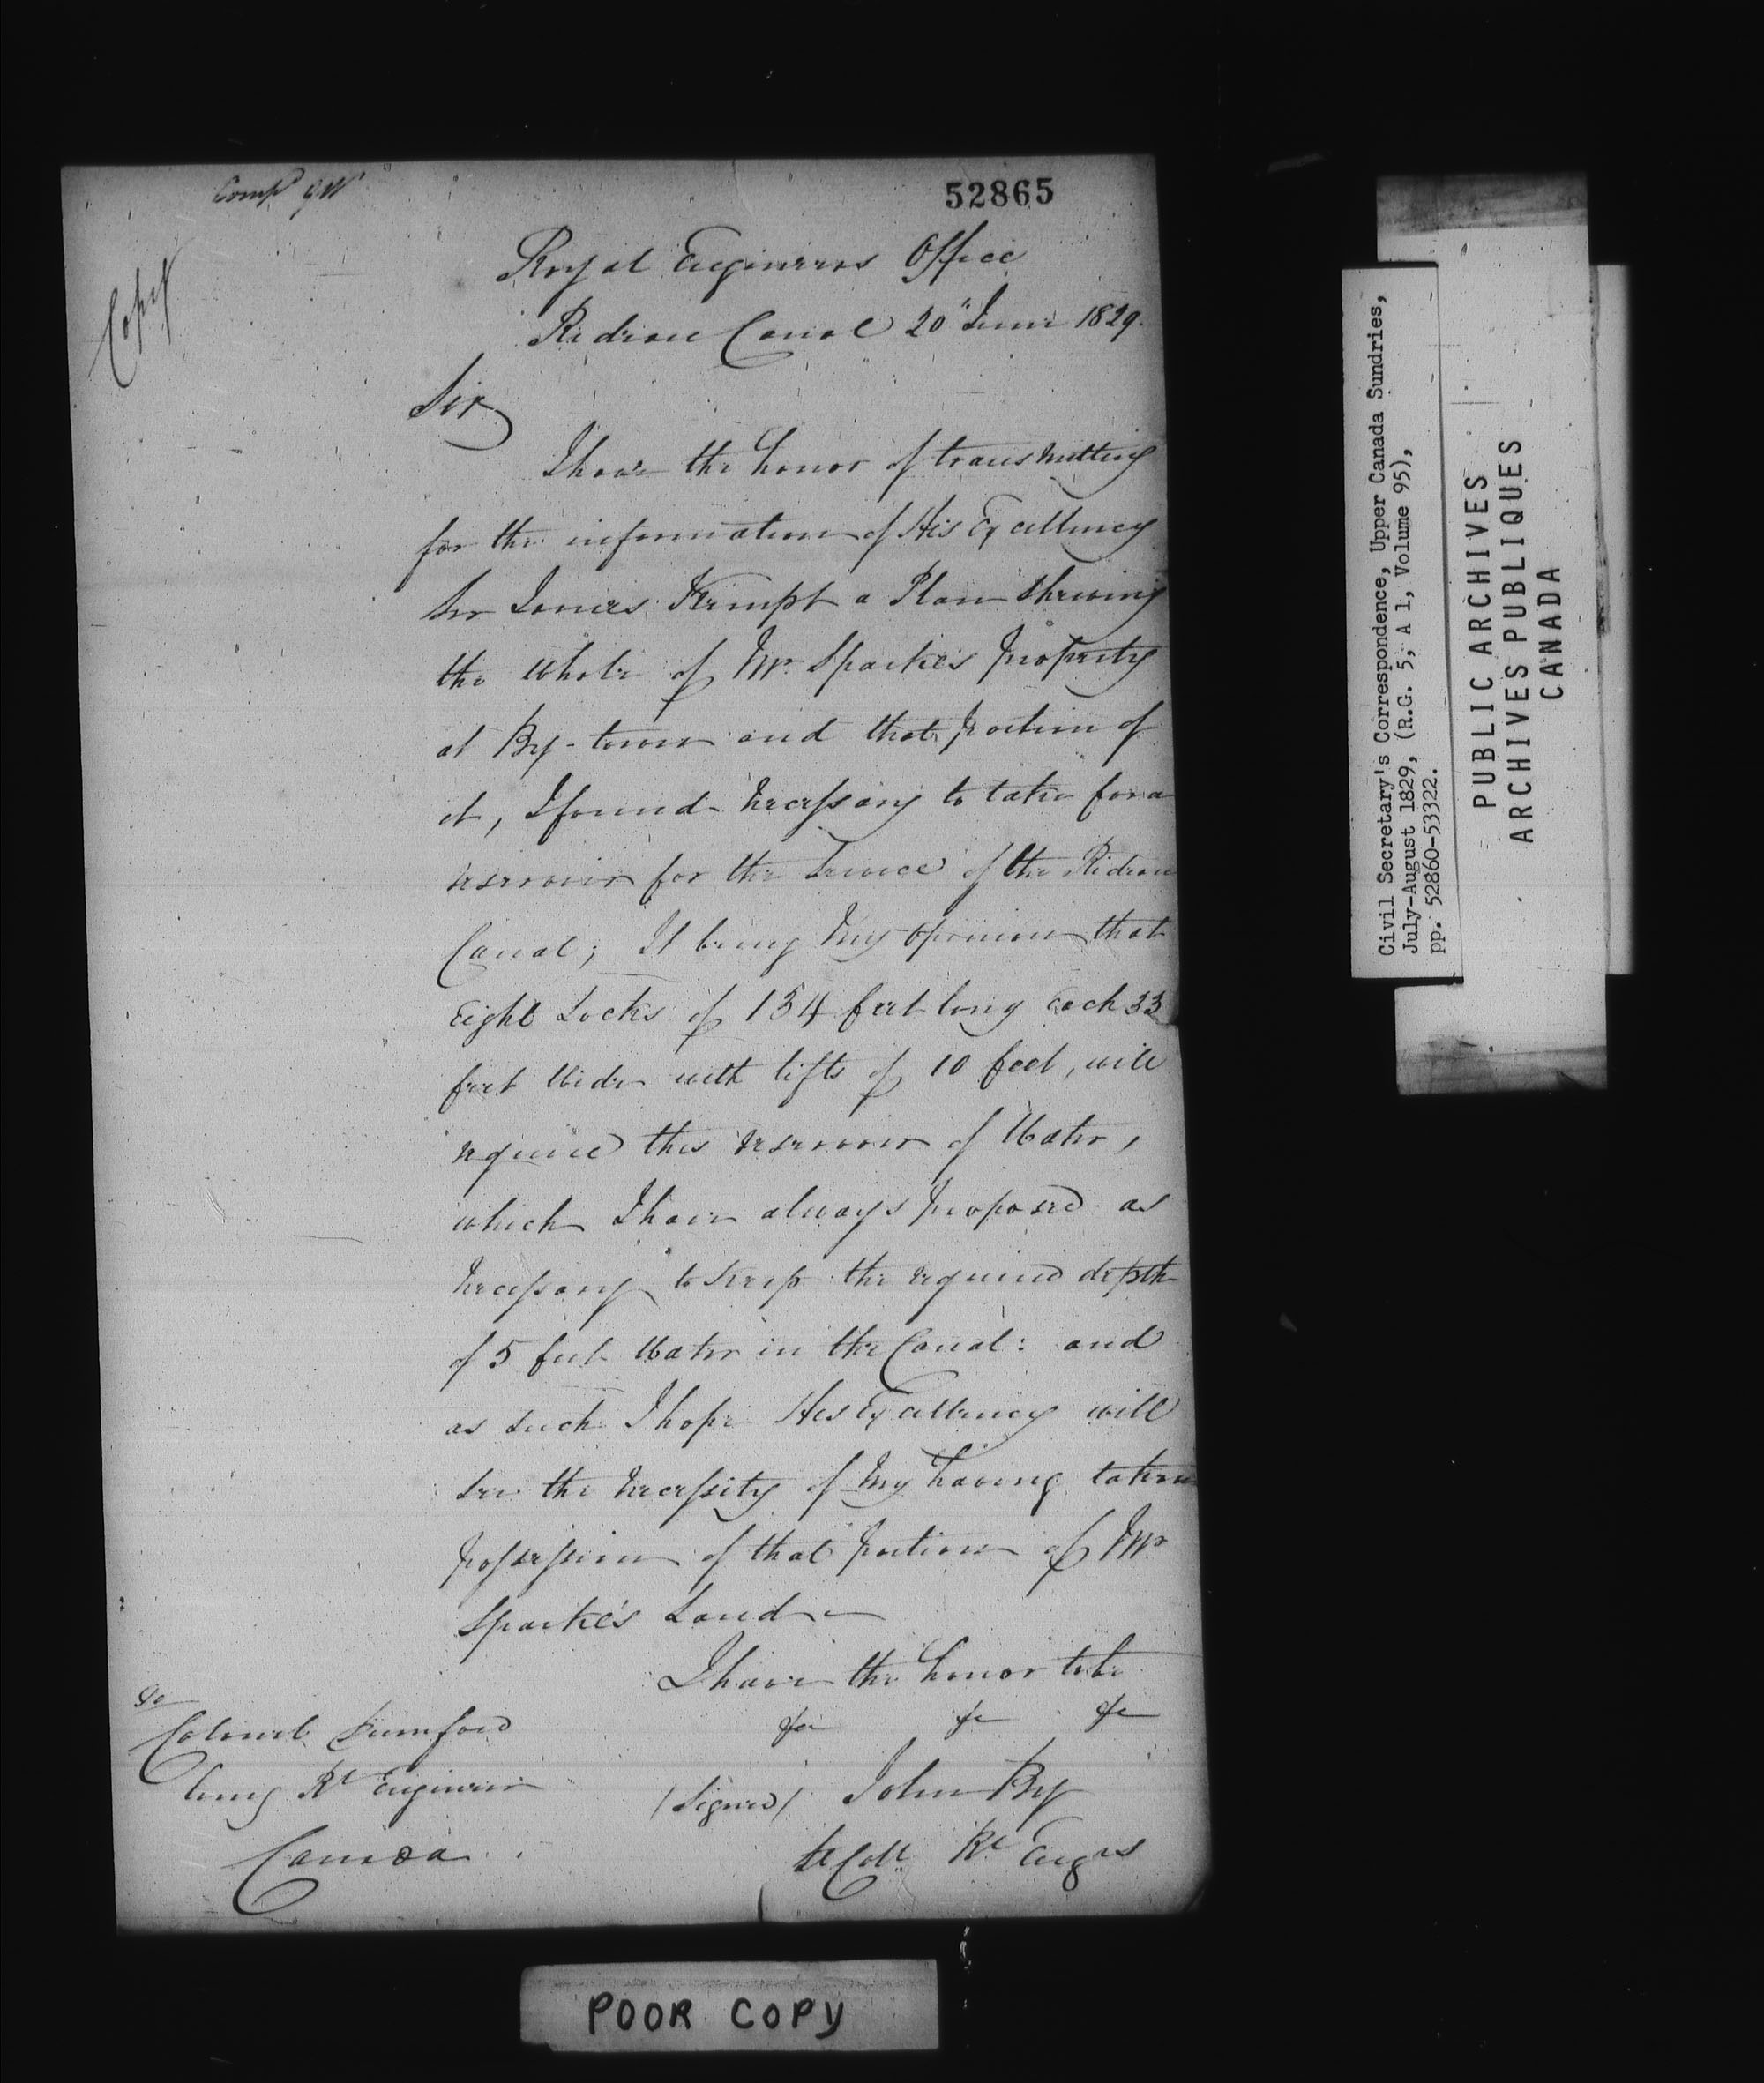 Comp^d GW
52865
Copy
Royal Engineers Office
Rideau Canal 20" June 1829.
Sir
I have the honor of transmitting
for the information of His Excellency
Sir James Kempt a Plan shewing
the whole of Mr. Sparke's property
at By-town and that portion of
it, I found necessary to take for a
reservoir for the service of the Rideau
Canal; It being my opinion that
Eight Locks of 134 feet long each 33
feet wide with lifts of 10 feet, will
require this reservoir of Water,
which I have always proposed as
necessary to keep the required depth
of 5 feet Water in the Canal: and
as such I hope His Excellency will
see the necessity of my having taken
possession of that portion of Mr
Sparke's Land
I have the honor to be
&c &c &c
(Signed) John By
Lt Coll Rl Engrs
Colonel Durnford
Comg Rl Engineer
Canada
POOR COPY
Civil Secretary's Correspondence, Upper Canada Sundries,
July-August 1829, (R.G. 5, A 1, Volume 95),
pp. 52860-53322.
PUBLIC ARCHIVES
ARCHIVES PUBLIQUES
CANADA